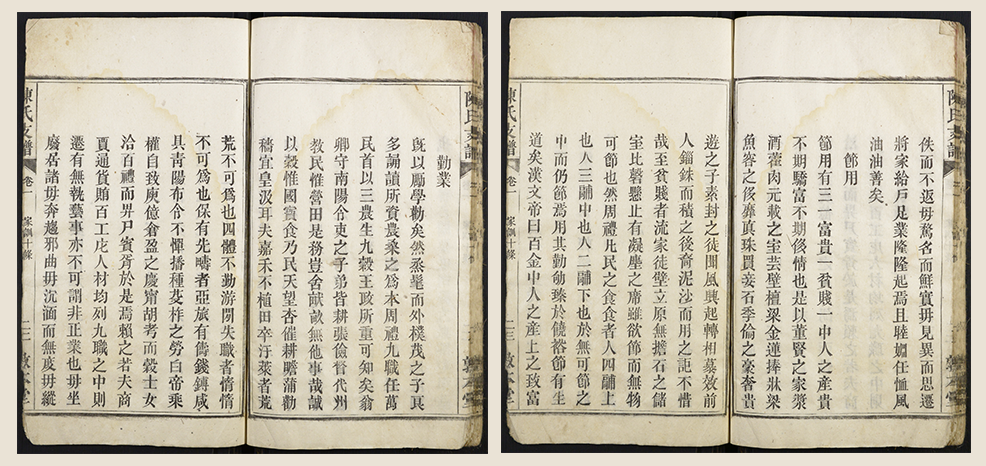 陳氏支譜
勤業
既以勵學勸矣然蒸髦而外樸茂之子良
多誦讀所資農桑之為本周禮九職任萬
民首以三農生九穀王政所重可知矣翁
卿守南陽令吏之子弟皆耕張儉督代州
教民惟營田是務豈舍畎畝無他事哉誠
以穀惟國寶食乃民天望杏催耕瞻蒲勸
穡宜皇汲耳夫嘉禾不植田卒汙萊者荒
荒不可為也四體不勤游閒失職者惰惰
不可為也保有先疇者亞旅有儔錢鎛咸
具青陽布令不憚播種芟柞之勞白帝乘
權自致庾億倉盈之慶黼胡考而穀士女
洽百禮而畀尸賓胥於是焉賴之若夫商
賈通貨賄百工庀人材均列九職之中則
遷有無執藝事亦不可謂非正業也毋坐
廢居諸毋奔趨邪曲毋沉湎而無度毋縱
陳氏支譜 卷一 家訓十條 二三 敦本堂
陳氏支譜
佚而不返毋騖名而鮮實毋見異而思遷
將家給戶足業隆隆起焉且睦婣任恤風
油油善矣
節用
節用有三一富貴一貧賤一中人之產貴
不期驕富不期侈情也是以董賢之家漿
酒藿肉元載之室芸壁檀梁金蓮捧牀梁
魚之侈靡真珠買妾石季倫之豪奢貴
遊之子素封之徒聞風興起轉相摹效前
人錙銖而積之後裔泥沙而用之詎不惜
哉至貧賤者流家徒壁立原無擔石之儲
室比磬懸止有凝塵之席雖欲節而無物
可節也然周禮凡民之食食者人四鬴上
也人三鬴中也人二鬴下也於無可節之
中而仍節焉用其勤劬臻於饒裕節有生
道矣漢文帝曰百金中人之產上之致富
陳氏支譜 卷一 家訓十條 二三 敦本堂